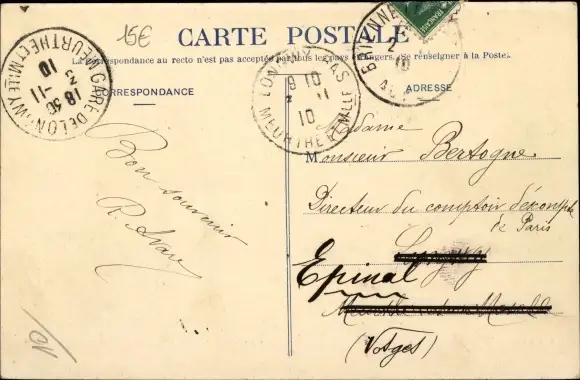 15€
CARTE POSTALE
La correspondance au recto n'est pas acceptée par tous les pays étrangers. (Se renseigner à la Poste).
CORRESPONDANCE
ADRESSE
GARE DE LONGWY
MEURTHE ET MLLE
18 30
3 -11
10
LONGWY
MEURTHE ET MOSELLE
9 10
3 11
10
BRIENNE
2
10
AUBE
Bon souvenir
R.
Madame
Monsieur Bertogne
Directeur du comptoir d'escompte
de Paris
Longwy
Epinal
Meurthe et Moselle
(Vosges)